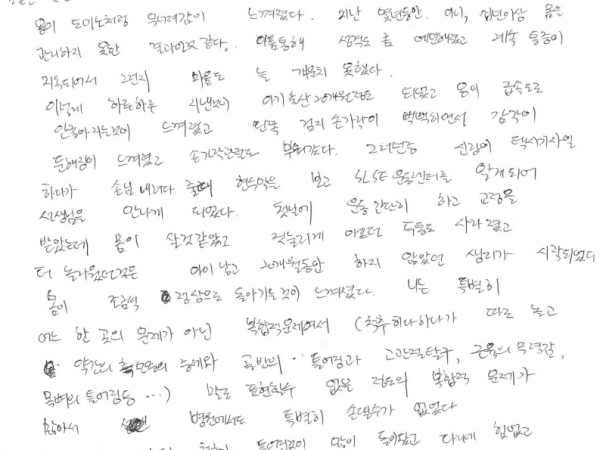 몸이 도미노처럼 무너져감이 느껴졌다. 지난 몇년동안. 아니, 십년이상 몸을
관리하지 못한 결과인것 같다. 이를통해 성격도 좀 예민해졌고 계속 통증이
지속되어서 2번지 마음도 늘 개운치 못했다.
이렇게 하루하루 지내면서 아기출산 20개월정도 되었고 몸이 급속도로
안좋아지는것이 느껴졌고 왼쪽 검지 손가락이 뻑뻑하면서 감각이
둔해짐이 느껴졌고 손가락관절도 부어갔다. 그러던중 신랑이 택시기사일
하다가 손님 내려다 줄때 현수막을 보고 SLSE 운동센터를 알게 되어
선생님을 만나게 되었다. 첫날에 운동 간단히 하고 교정을
받았는데 몸이 살것같았고 짓눌리게 아프던 두통도 사라졌고
더 놀라웠던것은 아이 낳고 20개월동안 하지 않았던 생리가 시작되었다
몸이 조금씩 정상으로 돌아가는것이 느껴졌다. 나는 특별히
어느 한 곳의 문제가 아닌 복합적문제여서 (척추하나하나가 따로 놀고
약간의 측만 골반의.. 틀어짐과 고관절탈구, 근육의 무력감,
목뼈의 틀어짐등...) 말로 표현할수 없을 정도의 복합적 문제가
많아서 병원에서도 특별히 손댈수가 없었다
틀어진것이 많이 돌아왔고 다리에 힘없고